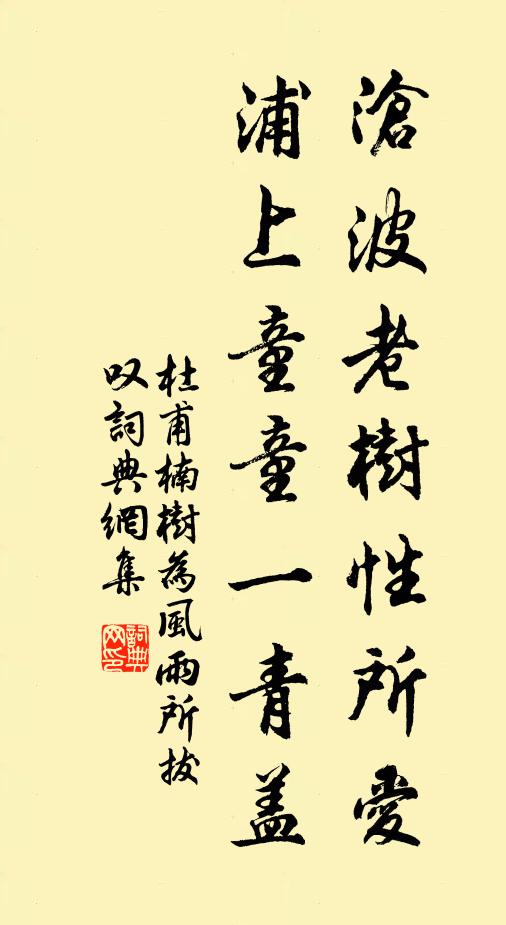 滄波老樹性所愛
浦上童童一青盖
杜甫楠樹為風雨所拔
叹詞典網集
詞典
网印